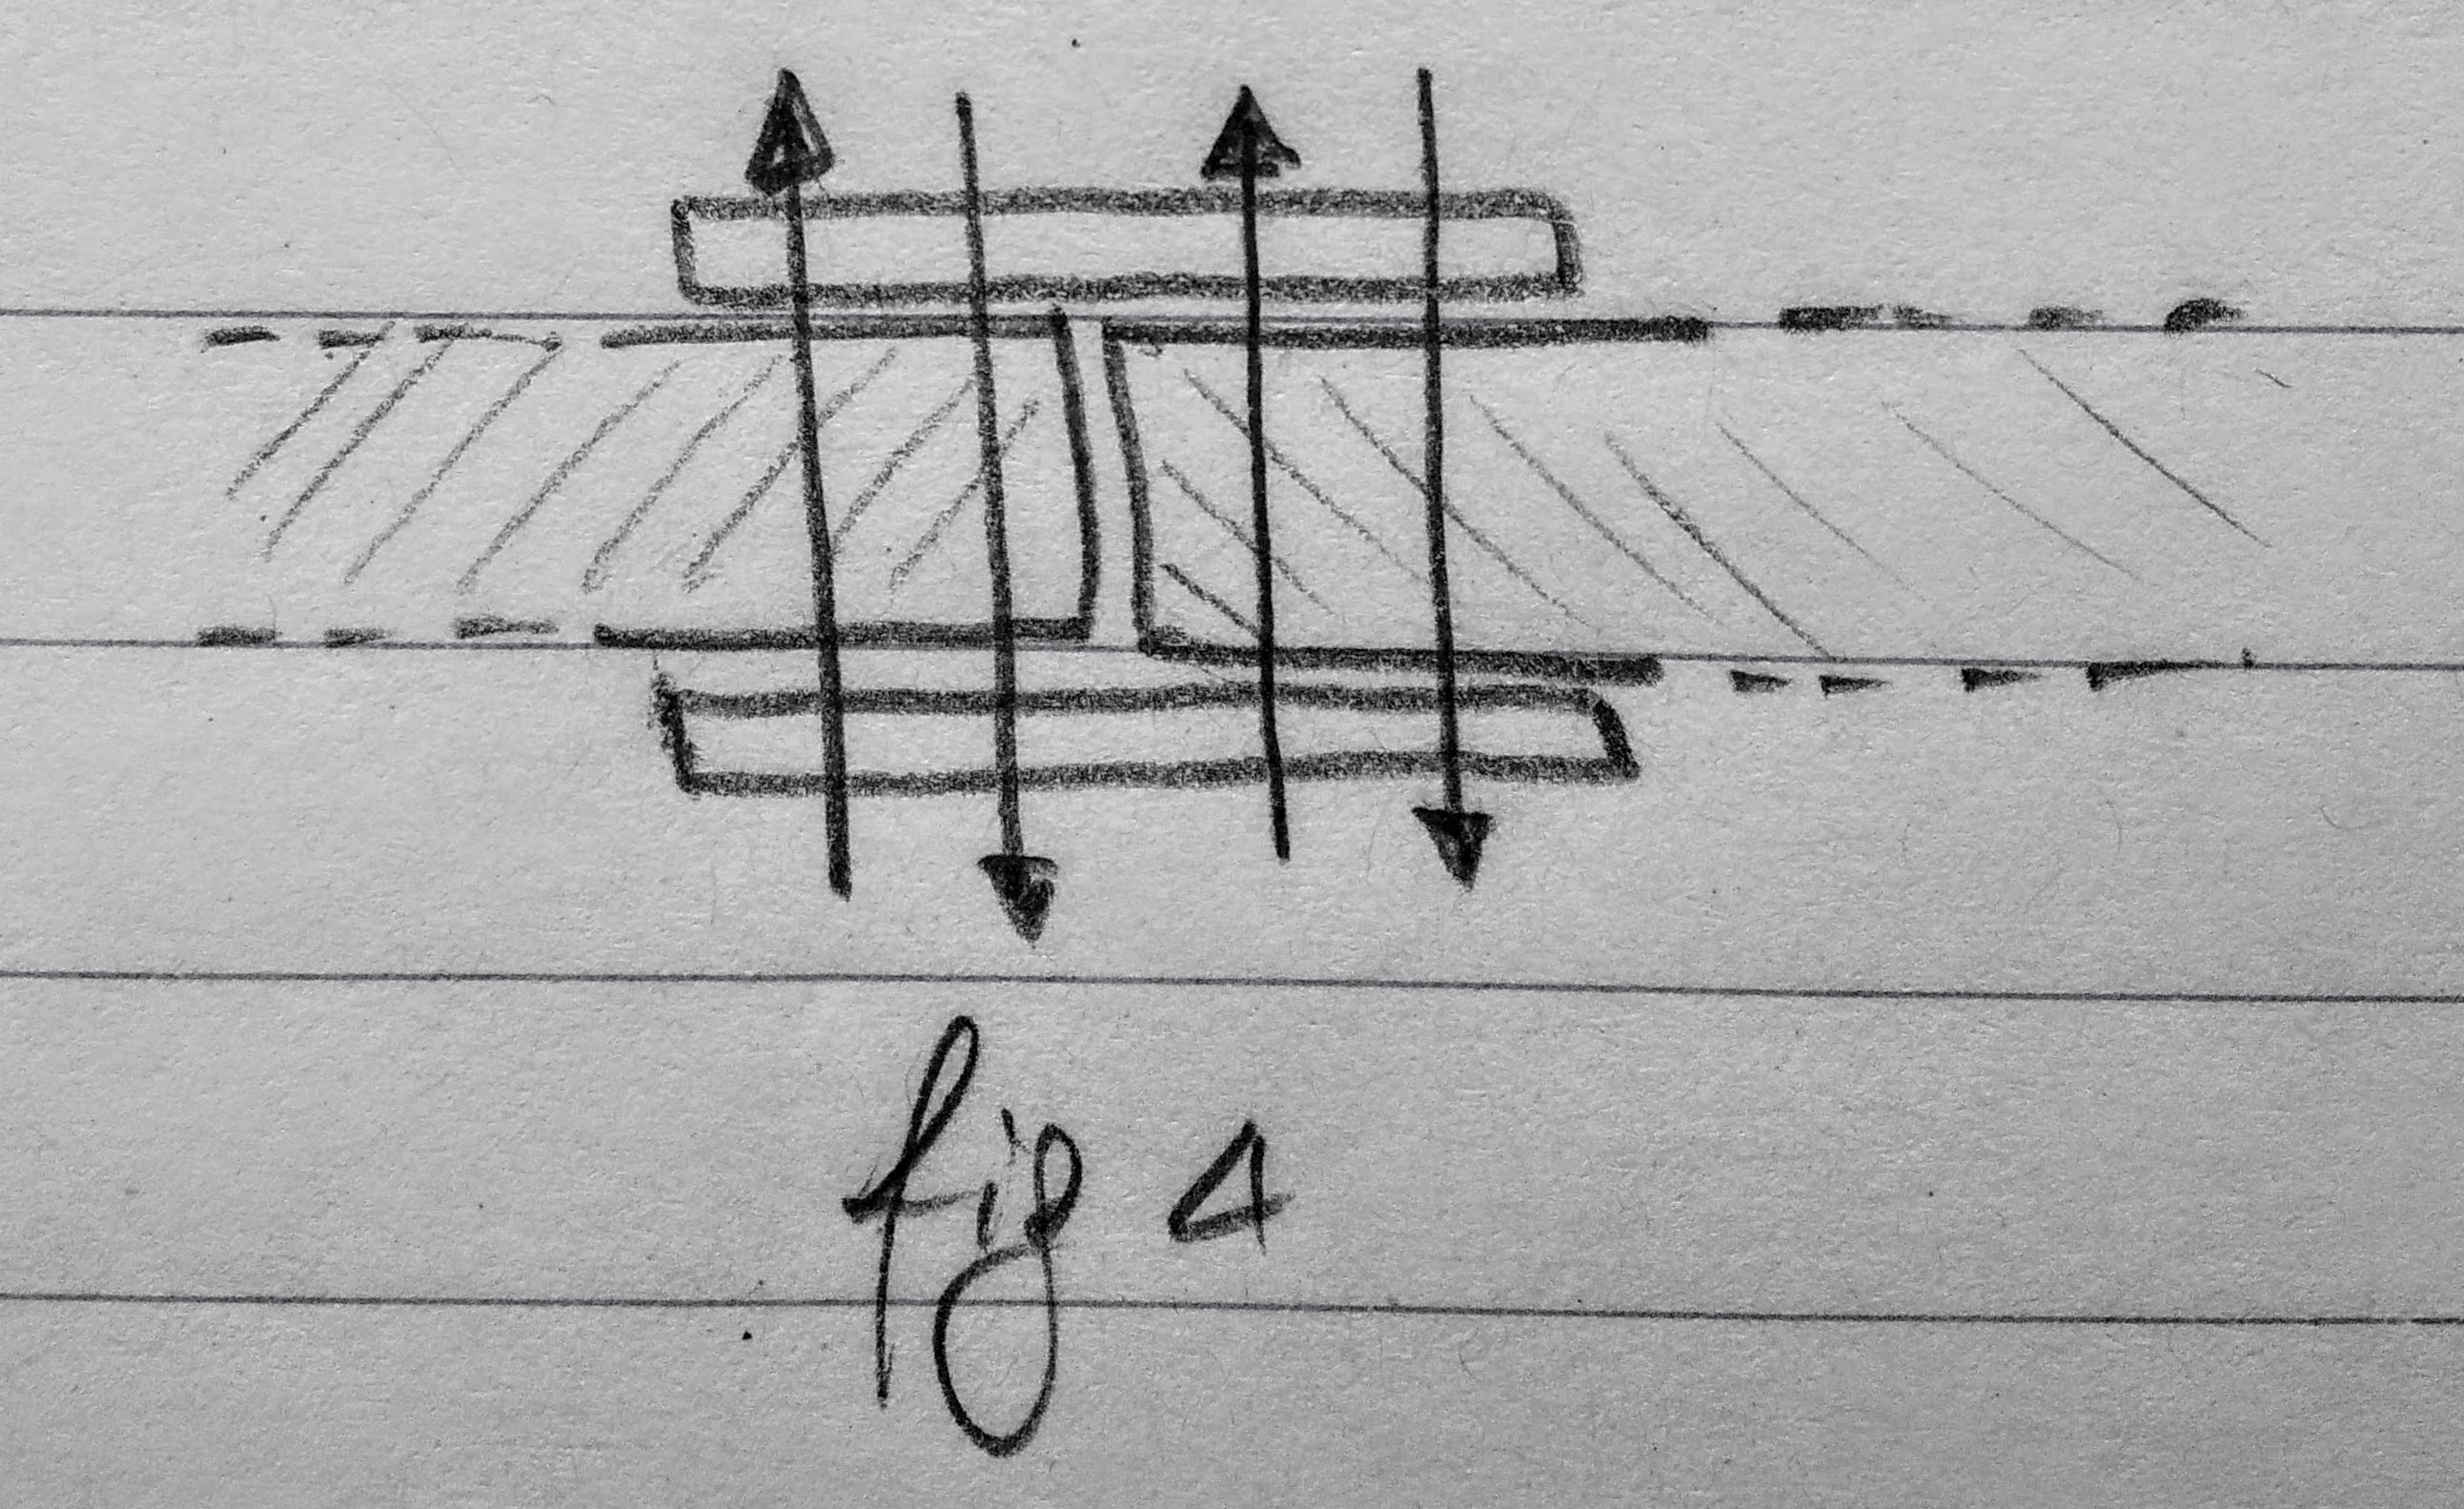 fig 4